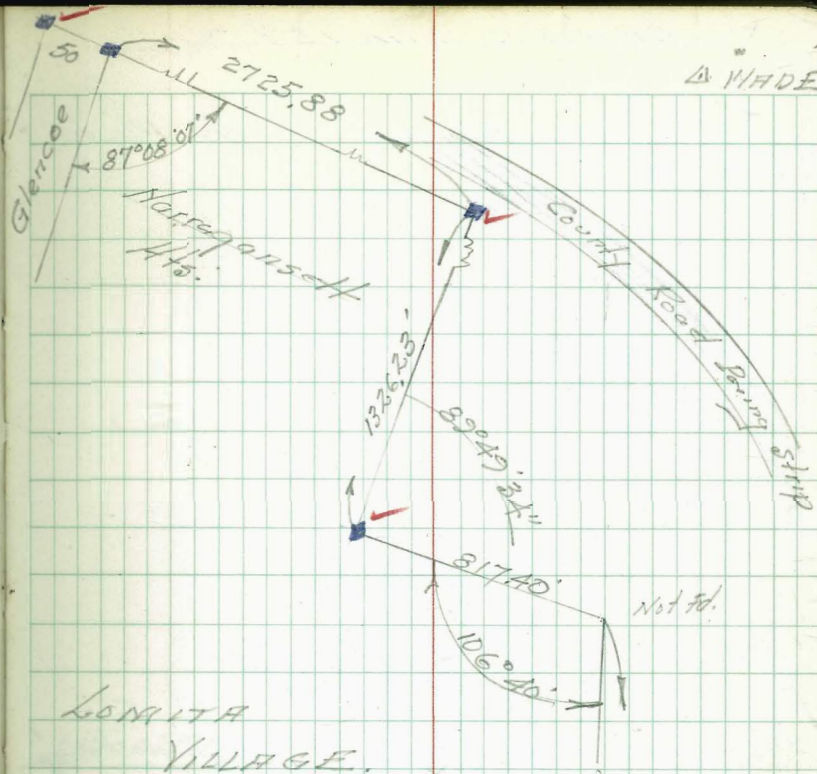 50
2725.88
Δ MADE
Glencoe
87°08'07"
Narragansett
Hts.
County Road Paving Strip
1326.23'
89°49'34"
817.40'
Not Fd.
106°40'
LOMITA
VILLAGE.